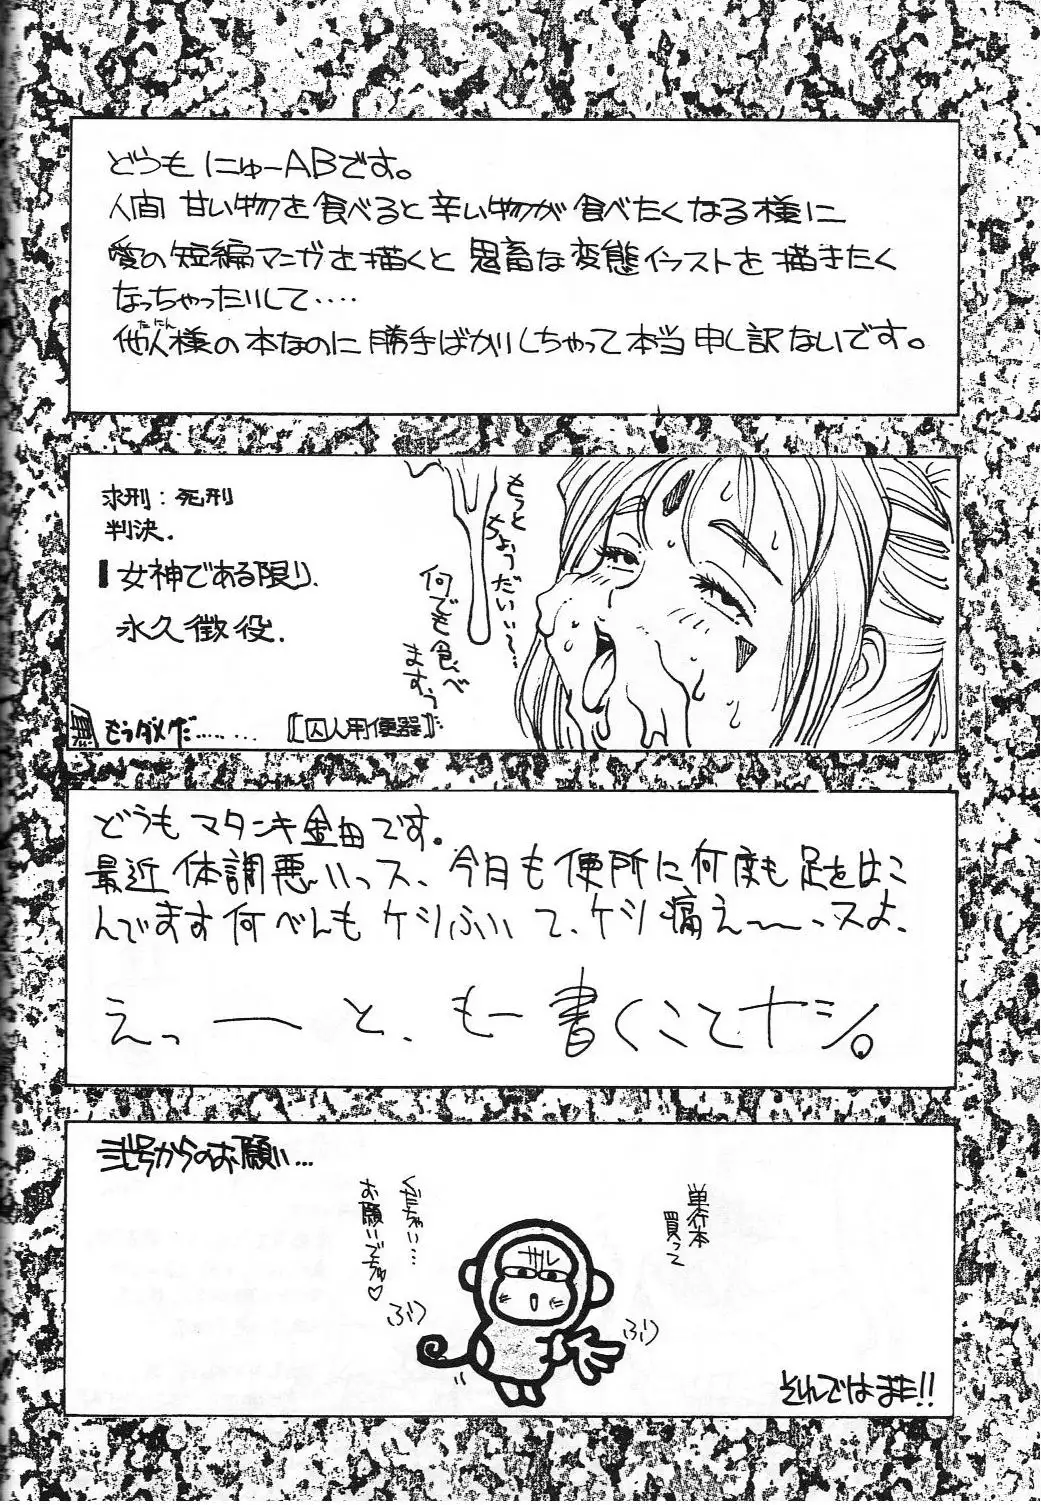 どうも にゅーABです。
人間 甘い物を食べると辛い物が食べたくなる様に
愛の短編マンガを描くと鬼畜な変態イラストを描きたく
なっちゃったりして‥‥
他人様の本なのに勝手ばかりしちゃって本当申し訳ないです。
たにん
求刑：死刑
判決.
女神である限り.
永久徴役.
もっと
ちょうだいい〜…
何でも食べ
ますっ
もうダメだ………
〖囚人用便器〗
どうもマタンキ金田です。
最近体調悪いっス、今日も便所に何度も足をはこ
んでます何べんもケツふいて、ケツ痛え〜〜っスよ、
えっーと、もー書くことナシ。
弐号からのお願い…
単行本
買って
くだちゃい…
お願いでちゅ♡
サル
ふり
ふり
それではまた!!